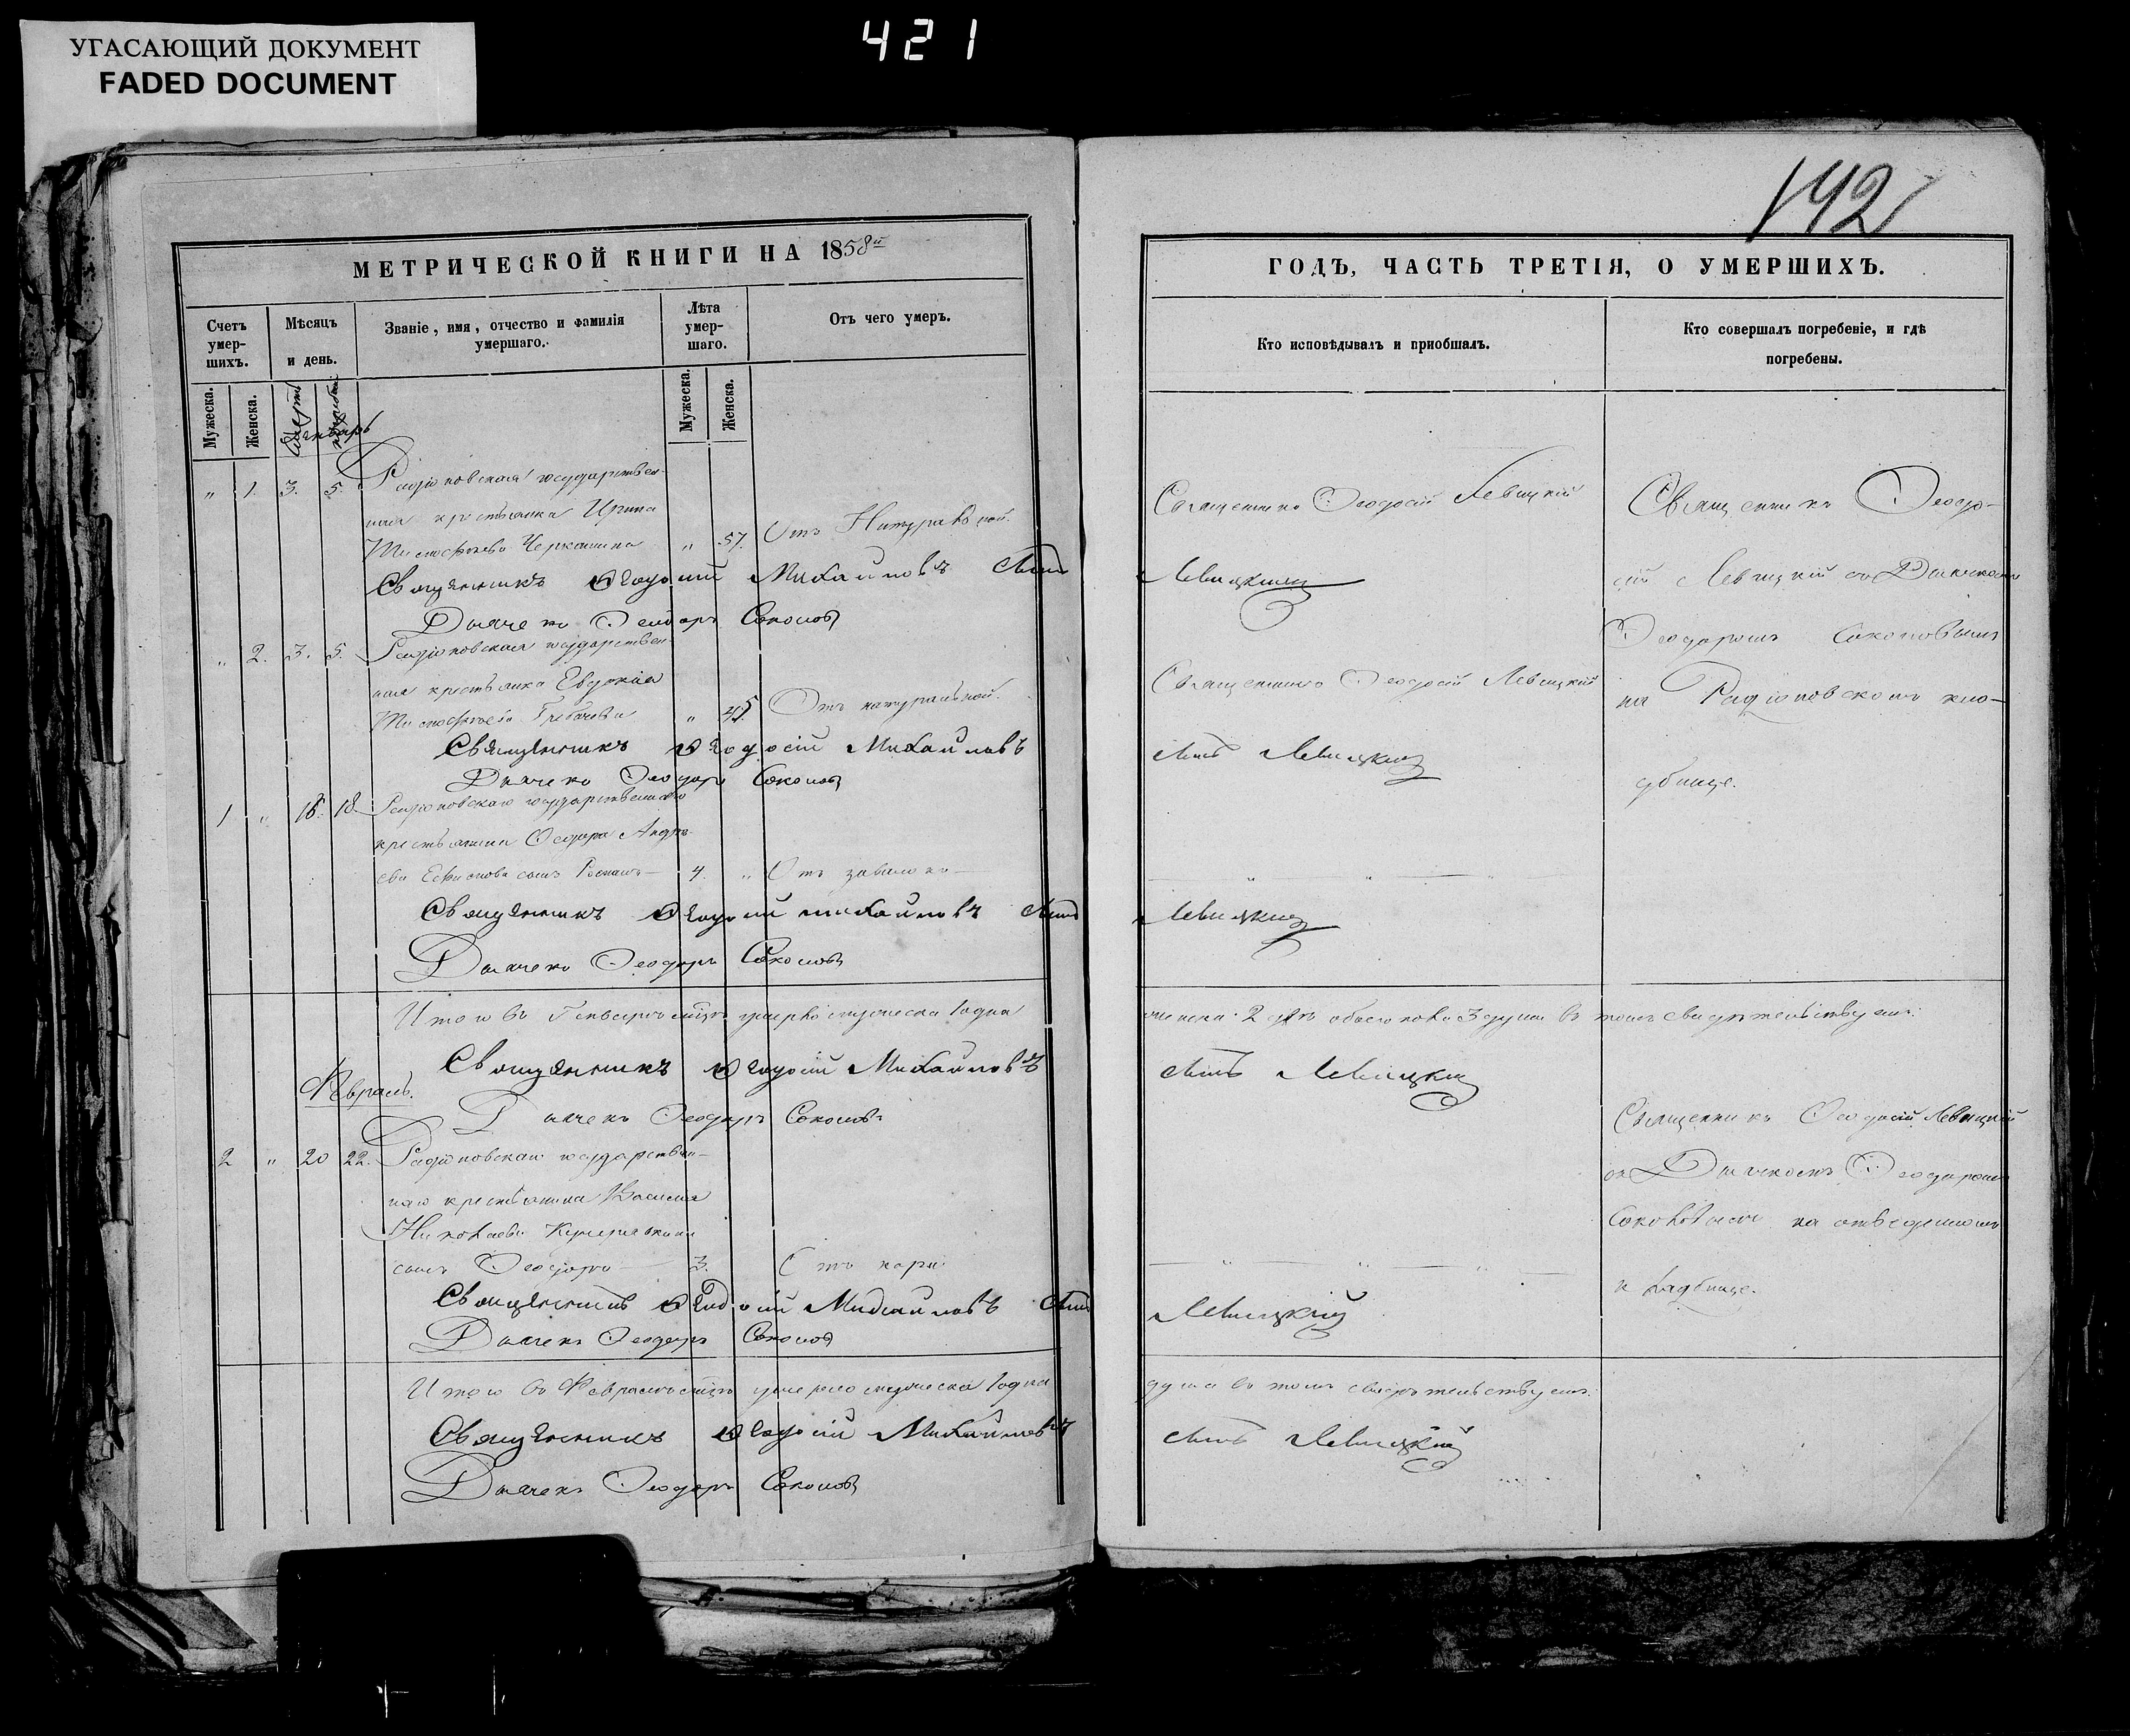 УГАСАЮЩИЙ ДОКУМЕНТ
FADED DOCUMENT
421
142
МЕТРИЧЕСКОЙ КНИГИ НА 1858й
Счетъ умершихъ.
Мѣсяцъ и день.
Званіе, имя, отчество и фамилія умершаго.
Лѣта умершаго.
Отъ чего умеръ.
Мужеска.
Женска.
Мужеска.
Женска.
Январь
" 1. 3. 5. Радіоновская государствен-
ная крестьянка Ирина
" 57. Отъ Натуральной.
Священникъ Ѳеодосій Михайловъ сынъ
Дьячекъ Ѳеодоръ Соколовъ
" 2. 3. 5. Радіоновская государствен-
ная крестьянка Евдокія
" 45 Отъ натуральной.
Священникъ Ѳеодосій Михайловъ
Дьячекъ Ѳеодоръ Соколовъ
1 " 16. 18. Радіоновскаго государственнаго
крестьянина Ѳеодора Андре-
ева сынъ Романъ 4. " Отъ
Священникъ Ѳеодосій Михайловъ сынъ
Дьячекъ Ѳеодоръ Соколовъ
Итого въ Генварѣ мѣсяцѣ умерло мужеска 1 одна
Священникъ Ѳеодосій Михайловъ
Февраль.
Дьячекъ Ѳеодоръ Соколовъ
2 " 20 22. Радіоновскаго государствен-
наго крестьянина Василія
Николаева
сынъ Ѳеодоръ 3. Отъ кори
Священникъ Ѳеодосій Михайловъ сынъ
Дьячекъ Ѳеодоръ Соколовъ
Итого въ Февралѣ мѣсяцѣ умерло мужеска 1 одна
Священникъ Ѳеодосій Михайловъ
Дьячекъ Ѳеодоръ Соколовъ
ГОДЪ, ЧАСТЬ ТРЕТІЯ, О УМЕРШИХЪ.
Кто исповѣдывалъ и пріобщалъ.
Кто совершалъ погребеніе, и гдѣ
погребены.
Священникъ Ѳеодосій Левицкій
Левицкій
Священникъ Ѳеодосій Левицкій
сынъ Левицкій
Левицкій
Священникъ Ѳеодо-
сій Левицкій съ Дьячкомъ
Ѳеодоромъ Соколовымъ
на Радіоновскомъ кла-
дбище.
женска 2 двѣ обоего пола 3 души въ томъ свидѣтельствуемъ:
сынъ Левицкій
Священникъ Ѳеодосій Левицкій
съ Дьячкомъ Ѳеодоромъ
Соколовымъ на отведенномъ
кладбище.
Левицкій
душа въ томъ свидѣтельствуемъ:
сынъ Левицкій